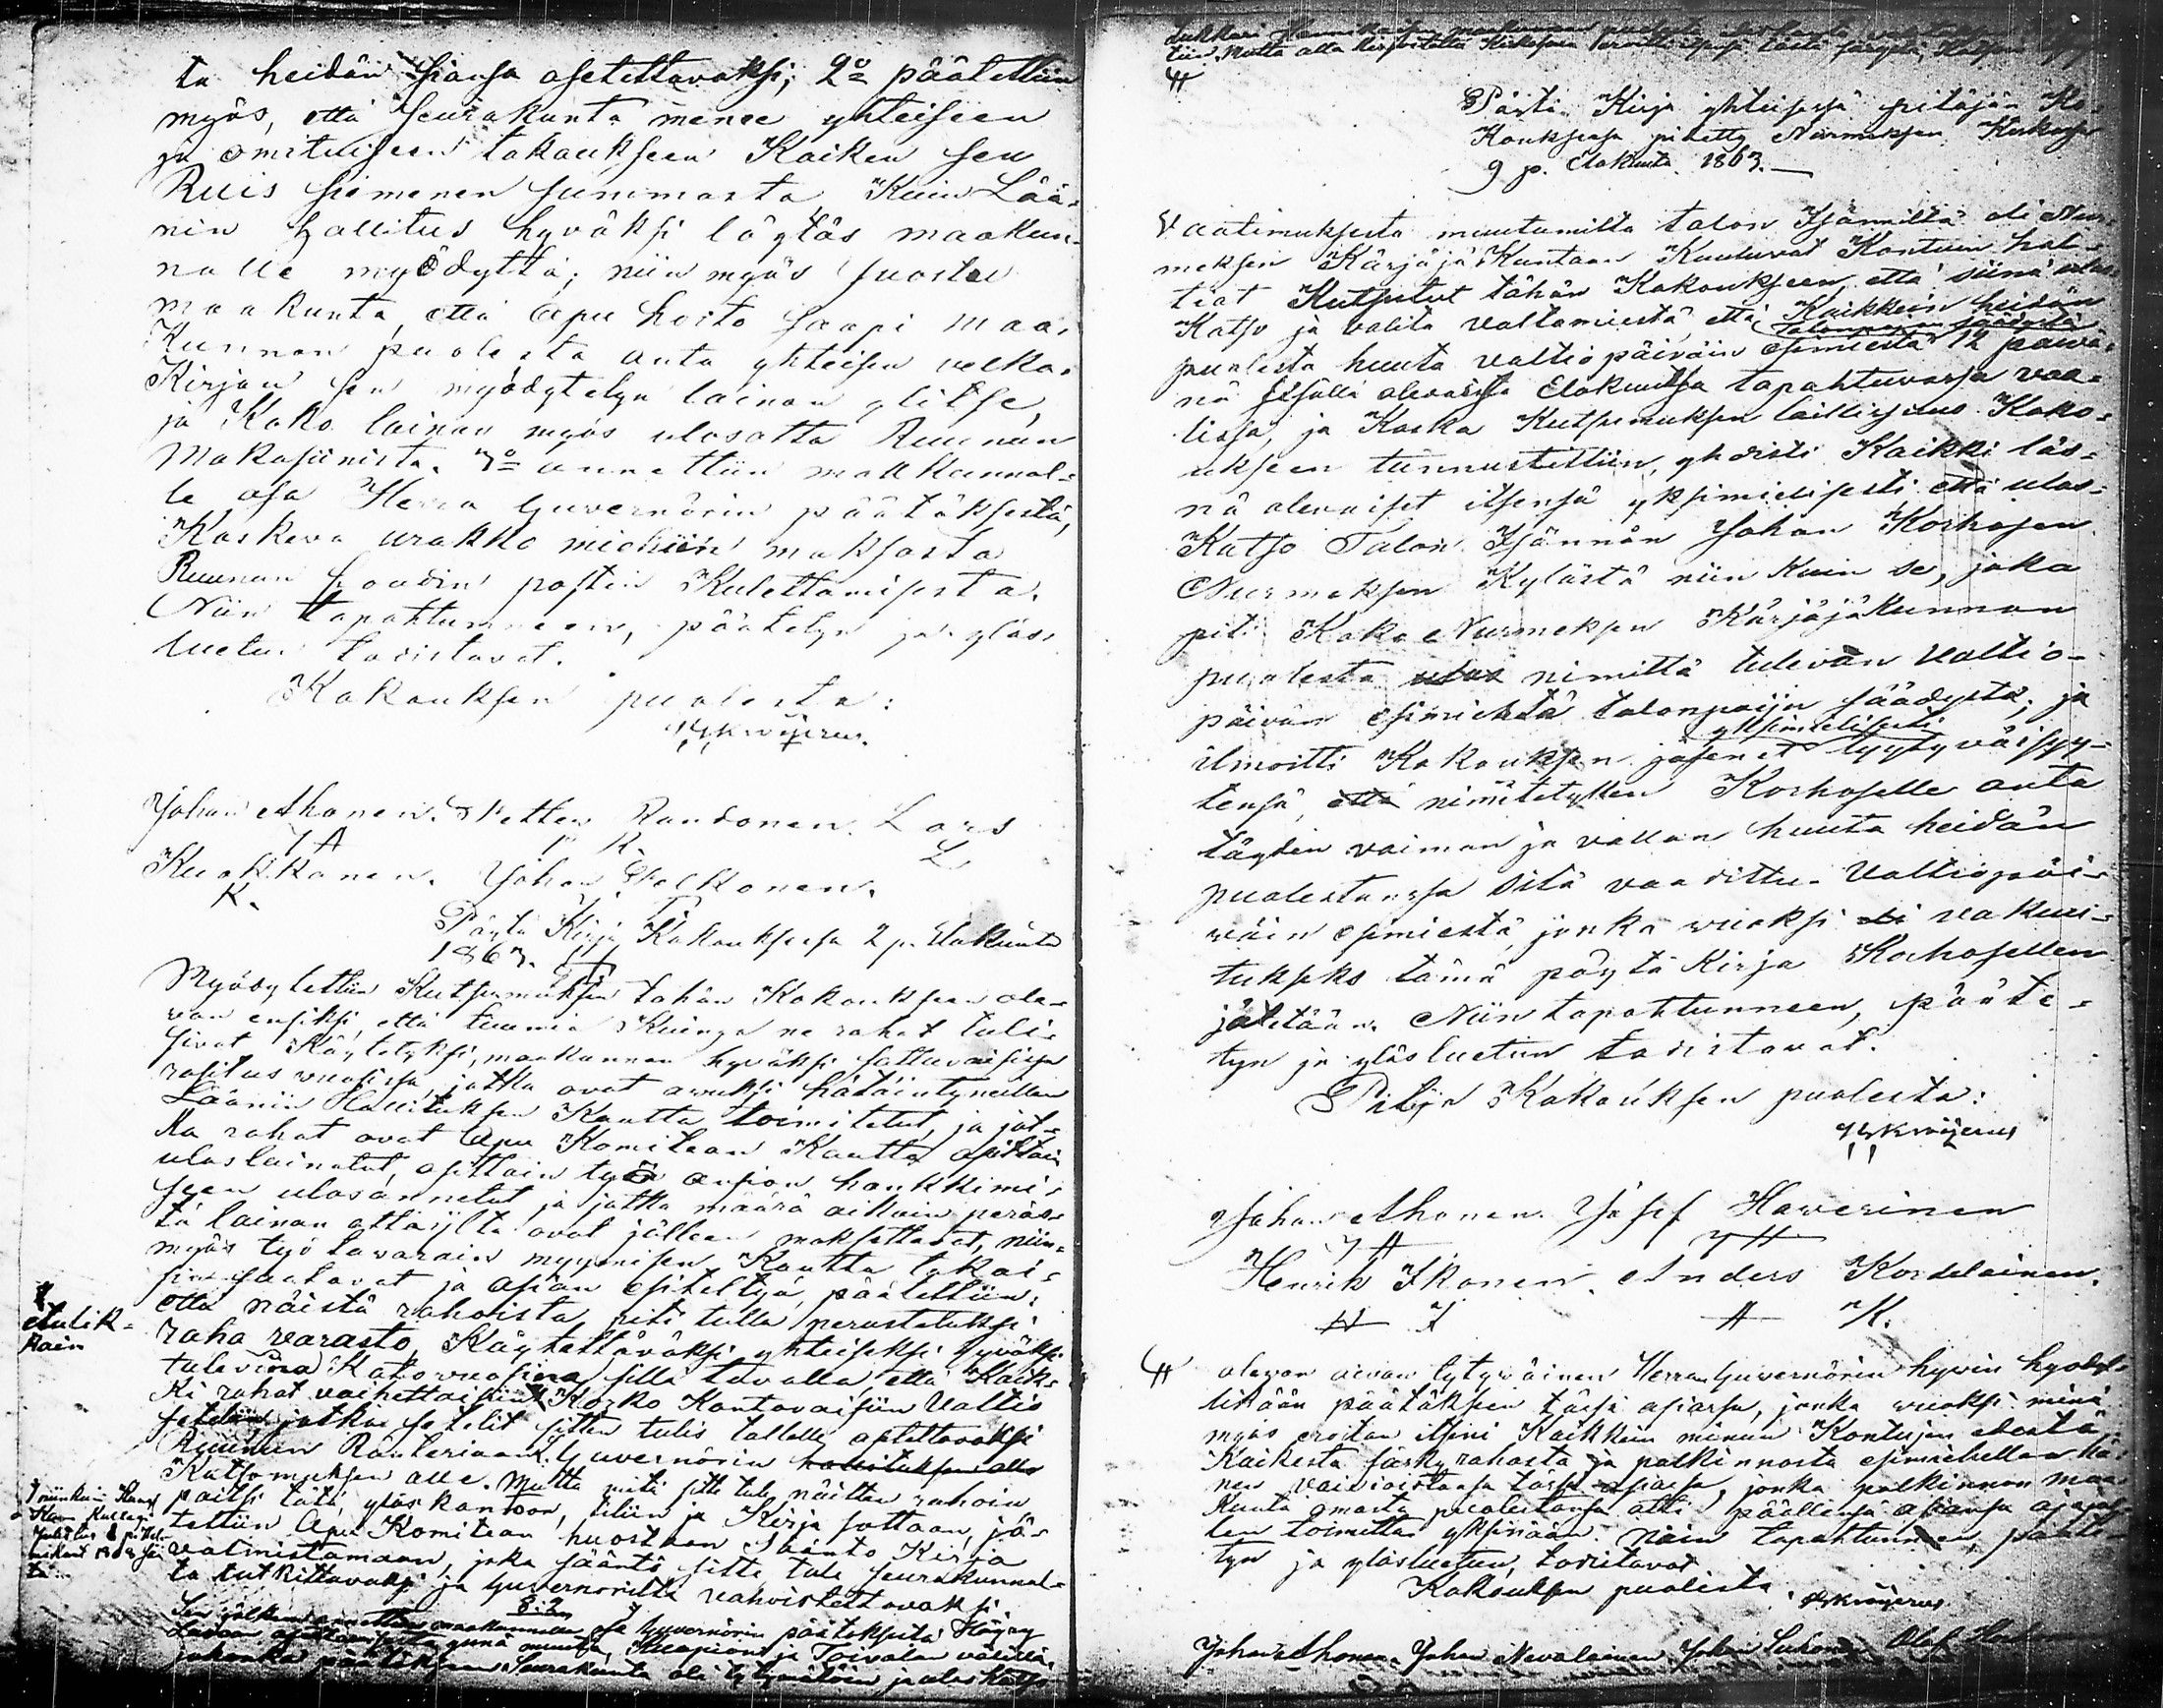 ta heidän siansa asetettavaksi; 2o päätettiin
myös, että Seurakunta menee yhteiseen
ja omituiseen takaukseen Kaiken sen
Ruis siemenen summasta, Kuin Lää-
nin hallitus hyväksi löytäs maakun-
nalle myödyttä; niin myös suostu
maakunta, että Apu hoito saapi maa-
Kunnan puolesta anta yhteisen velka-
Kirjan sen myödytetyn lainan ylitse,
ja Koko lainan myös ulosotta Ruunun
Makasinista. 3o annettiin maakunnal-
le osa Herra Guvernörin päätöksestä,
Koskeva urakko miehiin maksosta
Ruunun postin Kulettamisesta.
Niin tapahtunneen, päätetyn ja yläs
luetun todistavat.
Kokouksen puolesta:
Johan Ahonen. Petter Randonen. Lars
J A P R. L
Kuakkanen. Johan
K.
Pöytä Kirja Kokouksesa 2 p. Elokuuta
1863.
Myödytettiin Kutsumuksen tähän Kokoukseen ole-
van ensiksi, että tuumia Kuinga ne rahat tuli-
sivat Käytetyksi, maakunnan hyväksi sattuvaisissa
rasitus vuosissa, jotka ovat avuksi hätäintyneillen
Läänin Hallituksen Kautta toimitetut, ja jot-
ka rahat ovat Apu Komitean Kautta osittain
uloslainatut, osittain työn ansion hankkimi-
seen ulosannetut ja jotka määrä aikain peräs-
tä lainan ottajilta ovat jälleen maksettavat, niin-
myös työ tavarain myymisen Kautta takai-
sin saatavat ja asian esiteltyä, päätettiin;
että näistä rahoista piti tulla perustetuksi
raha varasto, Käytettäväksi yhteiseksi hyväksi
tulevina Katovuosina, sillä tavalla, että Kaik-
ki rahat vaihettaisiin Korko Kantavaisiin Valtio
seteliin, jotka setelit sitten tulis tallella astettavaksi
Ruunun Ränteriaan Guvernörin hallituksen alle
Katsomuksen alle. Mutta mitä sitte tule näitten rahoin
paitsi tätä, ylöskantoon, tiliin ja Kirja sottaan, jä-
tettiin Apu Komitean huostaan Sääntö Kirja
valmistamaan, joka sääntö sitte tule seurakunnal-
ta tutkittavaksi ja Guvernöriltä vahvistettavaksi.
Sen jälkeen annettiin maakunnalle osa Guvernörin päätöksestä
Toivolan välillä,
päätökseen Seurakunta oli tytymätöin ja ulos Katso
Autik-
kain
Pöytä Kirja yhteisessä pitäjän Ko-
Kouksesa pidetty Nurmeksen Kirkossa
9 p. Elokuuta 1863.
Vaatimuksesta muutamilta talon Isänniltä oli Nur-
meksen Käräjä Kuntaan Kuuluvat Kontuin hal-
tiat Kutsutut tähän Kokoukseen, että siinä ulos-
Katso ja valita valtamiestä, että Kaikkein heidän
talonpojan säädystä
puolesta huuta valtiopäiväin esimiestä 12 päivä-
nä sisällä olevaista Elokuulla tapahtuvassa vaa-
lissa, ja Koska Kutsumuksen laillisuus Koko-
ukseen tunnustettiin, yhdisti Kaikki läs-
nä olevaiset itsensä yksimielisesti että ulos-
Katso Talon Isännän Johan Korhosen
Nurmeksen Kylästä niin Kuin se, joka
piti Koko Nurmeksen Käräjäkunnan
puolesta ulos nimittä tulevan Valtio-
päivän esimiestä talonpoijan säädystä; ja
yksimielisesti
ilmoitti Kokouksen jäsenet tyytyväisyy-
tensä, että nimitetyllen Korhoselle anta
täyden voiman ja vallan huuta heidän
puolestansa sitä vaadittua Valtiopäi-
väin esimiestä, jonka vuoksi vakuu-
tukseks tämä pöytä Kirja Korhosellen
jätetään. Niin tapahtunneen, pääte-
tyn ja ylösluetun todistavat.
Pitäjä Kokouksen puolesta:
Johan Ahonen. Josef Haverinen
J A J H
Henrik Ikonen. Anders Kordelainen.
H I A K.
olevan aivan tytyväinen Herra Guvernörin hyvin hyödyl-
lisään päätöksen tässä asiassa, jonka vuoksi minä
myös eroitan itseni Kaikkein minun Kontujen edestä
Kaikesta särky rahasta ja palkinnosta esimiehellen hä-
nen vaivoistansa tässä asiassa, jonka palkinnon maa-
Kunta omasta puolestansa otti päällensä
ten toimitta yksinään. Näin tapahtunneen, pääte-
tyn ja ylösluetun, todistavat
Kokouksen puolesta.
Johan Ahonen. Johan Nevalainen Johan Olof